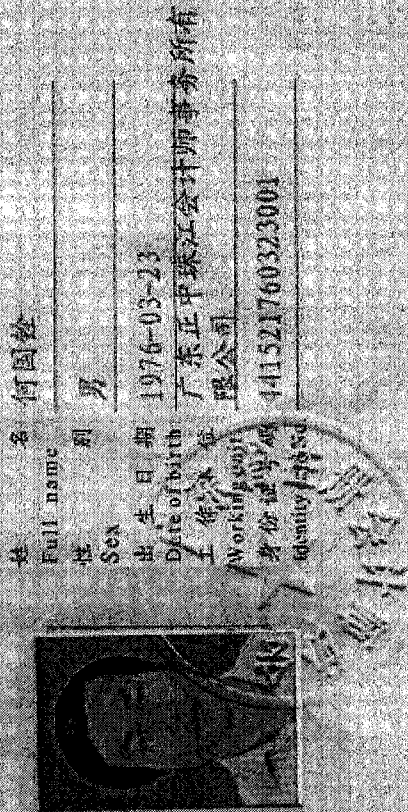 姓 名 何国铨
Full name
性 别 男
Sex
出生日期 1976-03-23
Date of birth
工作单位 广东正中珠江会计师事务所有
Working unit 限公司
身份证号码 441521760323001
Identity card No.